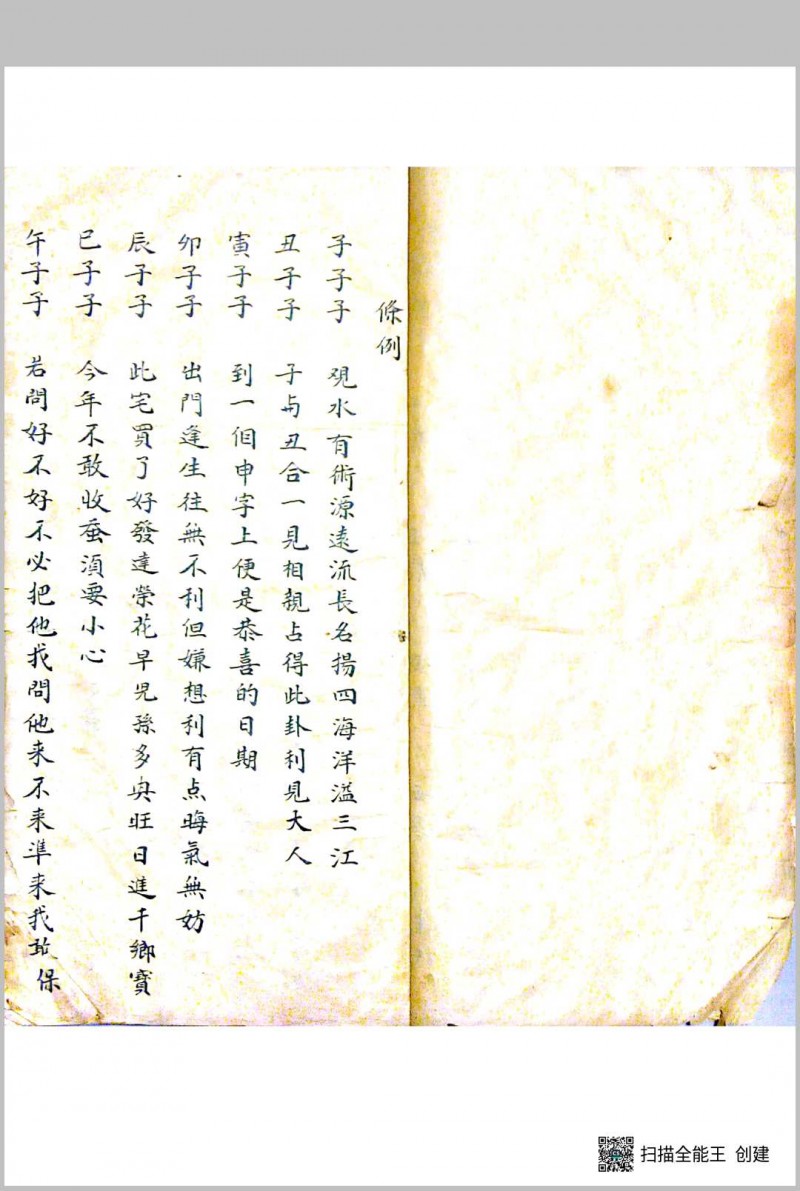 條例
子子子 觀水有術源遠流長名揚四海洋溢三江
丑子子 子与丑合一見相親占得此卦利見大人
寅子子 到一個申字上便是恭喜的日期
卯子子 出門逢生往無不利但嫌想利有点晦氣無妨
辰子子 此宅買了好發達榮花早児孫多興旺日進千鄉寶
巳子子 今年不敢收蚕須要小心
午子子 若問好不好不必把他我問他来不来準来我敢保
扫描全能王 创建